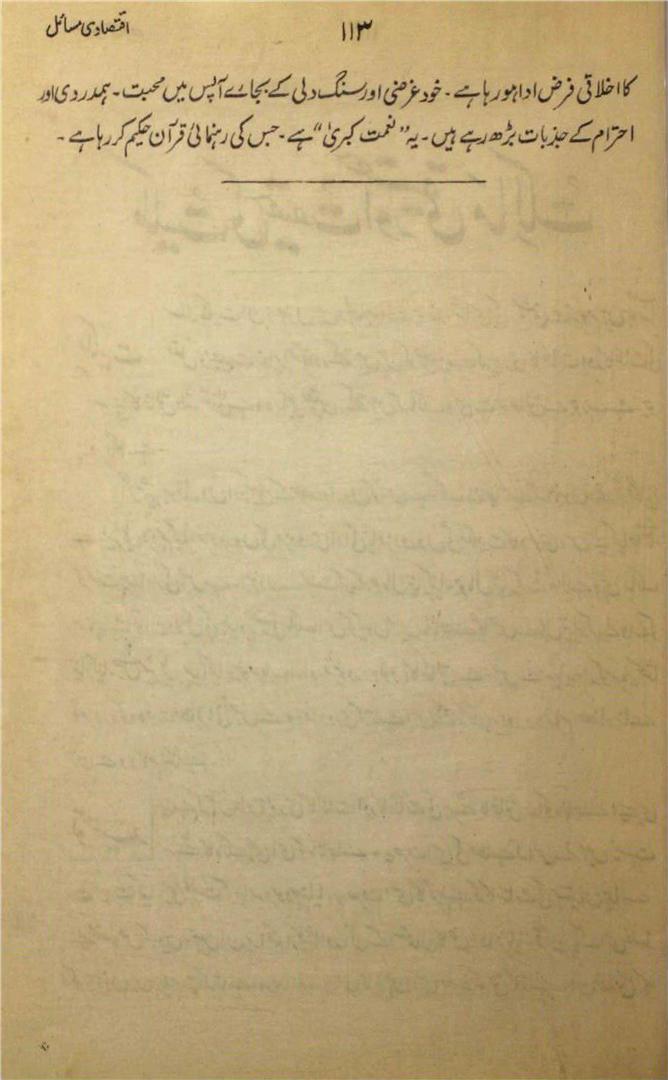 اقتصادی مسائل
۱۱۳
کا اخلاقی فرض ادا ہو رہا ہے۔ خود غرضی اور سنگ دلی کے بجائے آپس میں محبت۔ ہمدردی اور
احترام کے جذبات بڑھ رہے ہیں۔ یہ ”نعمت کبریٰ“ ہے۔ جس کی رہنمائی قرآن حکیم کر رہا ہے۔